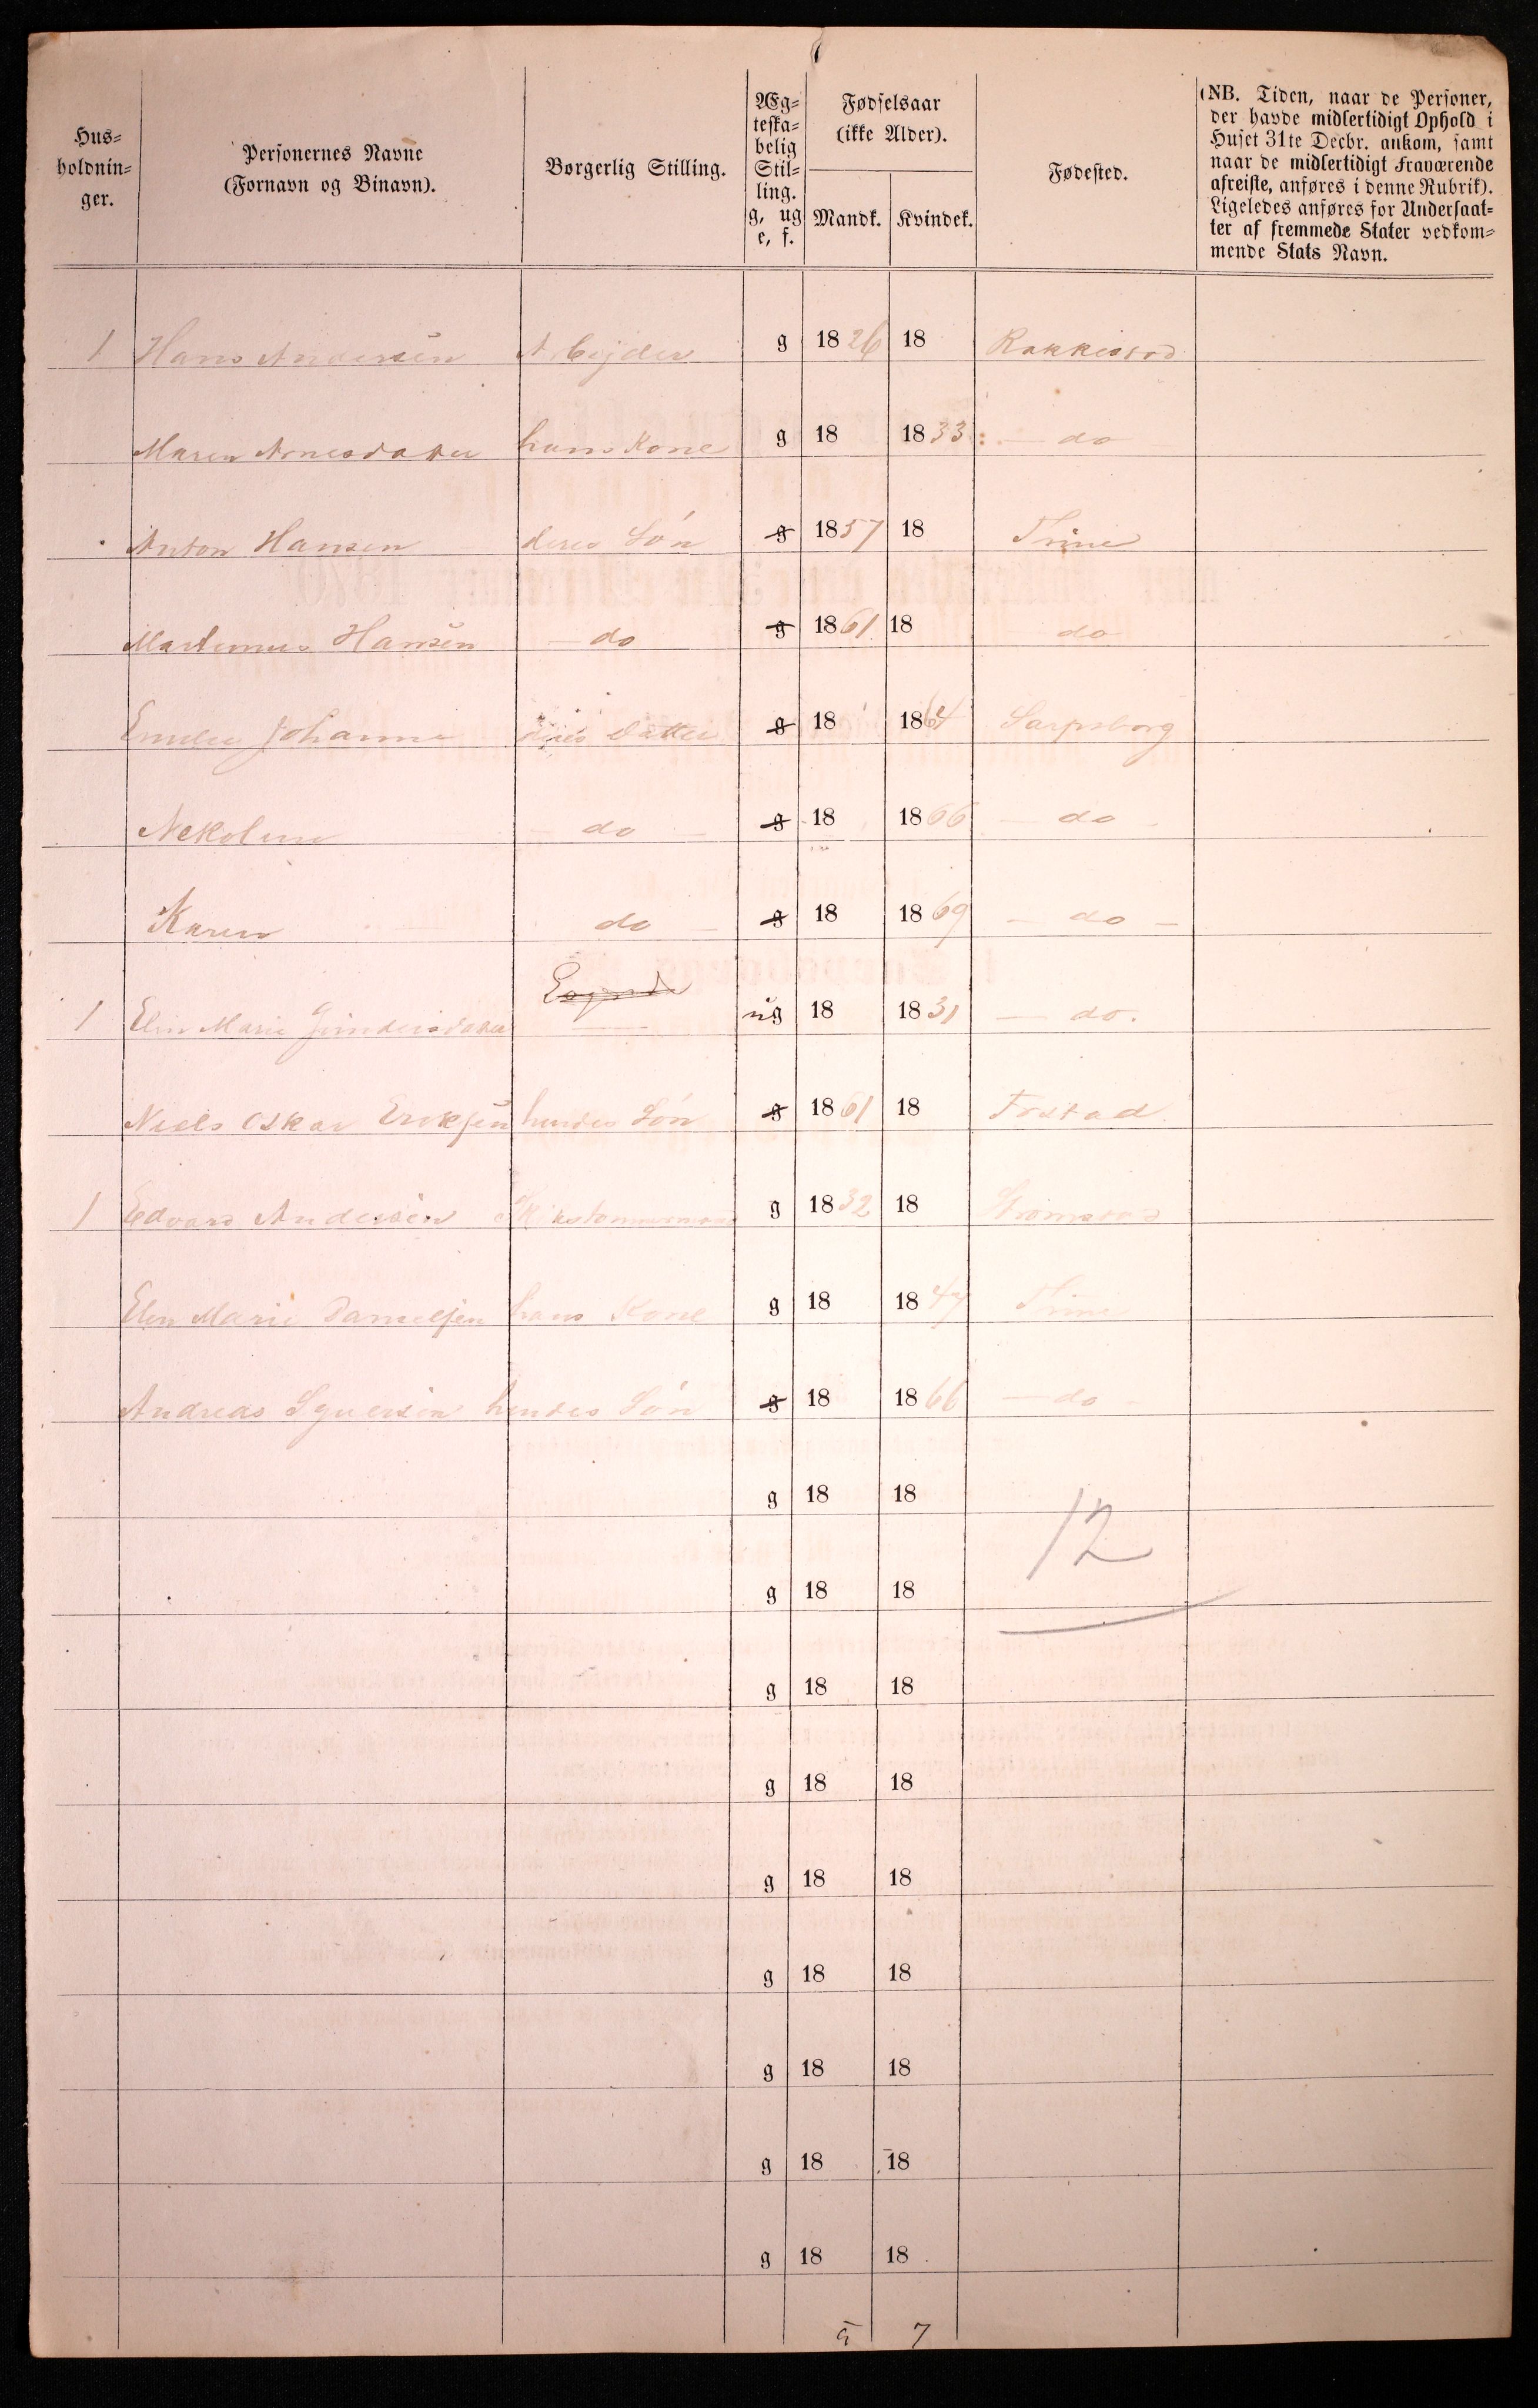 Hus-
holdnin-
ger.
Personernes Navne
(Fornavn og Binavn).
Borgerlig Stilling.
Æg-
teska-
belig
Stil-
ling.
g, ug
e, f.
Fødselsaar
(ikke Alder).
Mandk. Kvindek.
Fødested.
(NB. Tiden, naar de Personer,
der havde midlertidigt Ophold i
Huset 31te Decbr. ankom, samt
naar de midlertidigt Fraværende
afreiste, anføres i denne Rubrik).
Ligeledes anføres for Undersaat-
ter af fremmede Stater vedkom-
mende Stats Navn.
1 Hans Andersen Arbejder g 1826 18 Rakkestad
Maren Arnesdatter hans Kone g 18 1833 do
Anton Hansen deres Søn g 1857 18 Thune
Martinus Hansen do g 1861 18 do
Emilie Johanne deres Datter g 18 1864 Sarpsborg
Nekoline do g 18 1866 do
Karen do g 18 1869 do
1 Elen Marie Gundersdatter Logerende ug 18 1831 do.
Niels Oskar Eriksen hendes Søn g 1861 18
1 Edvard Andersen Skibstømmermand g 1832 18 Strømstad
Elen Marie Danielsen hans Kone g 18 1847 Thune
Andreas hendes Søn g 18 1866 do
g 18 18
12
g 18 18
g 18 18
g 18 18
g 18 18
g 18 18
g 18 18
g 18 18
g 18 18
5 7